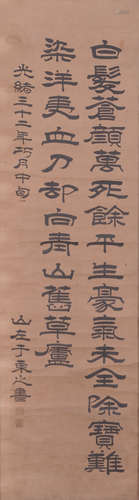 白髮蒼顏萬死餘平生豪氣未全除寶難
染洋夷血刀却向壽山舊草廬
光緒三十二年巧月中旬
山左于書